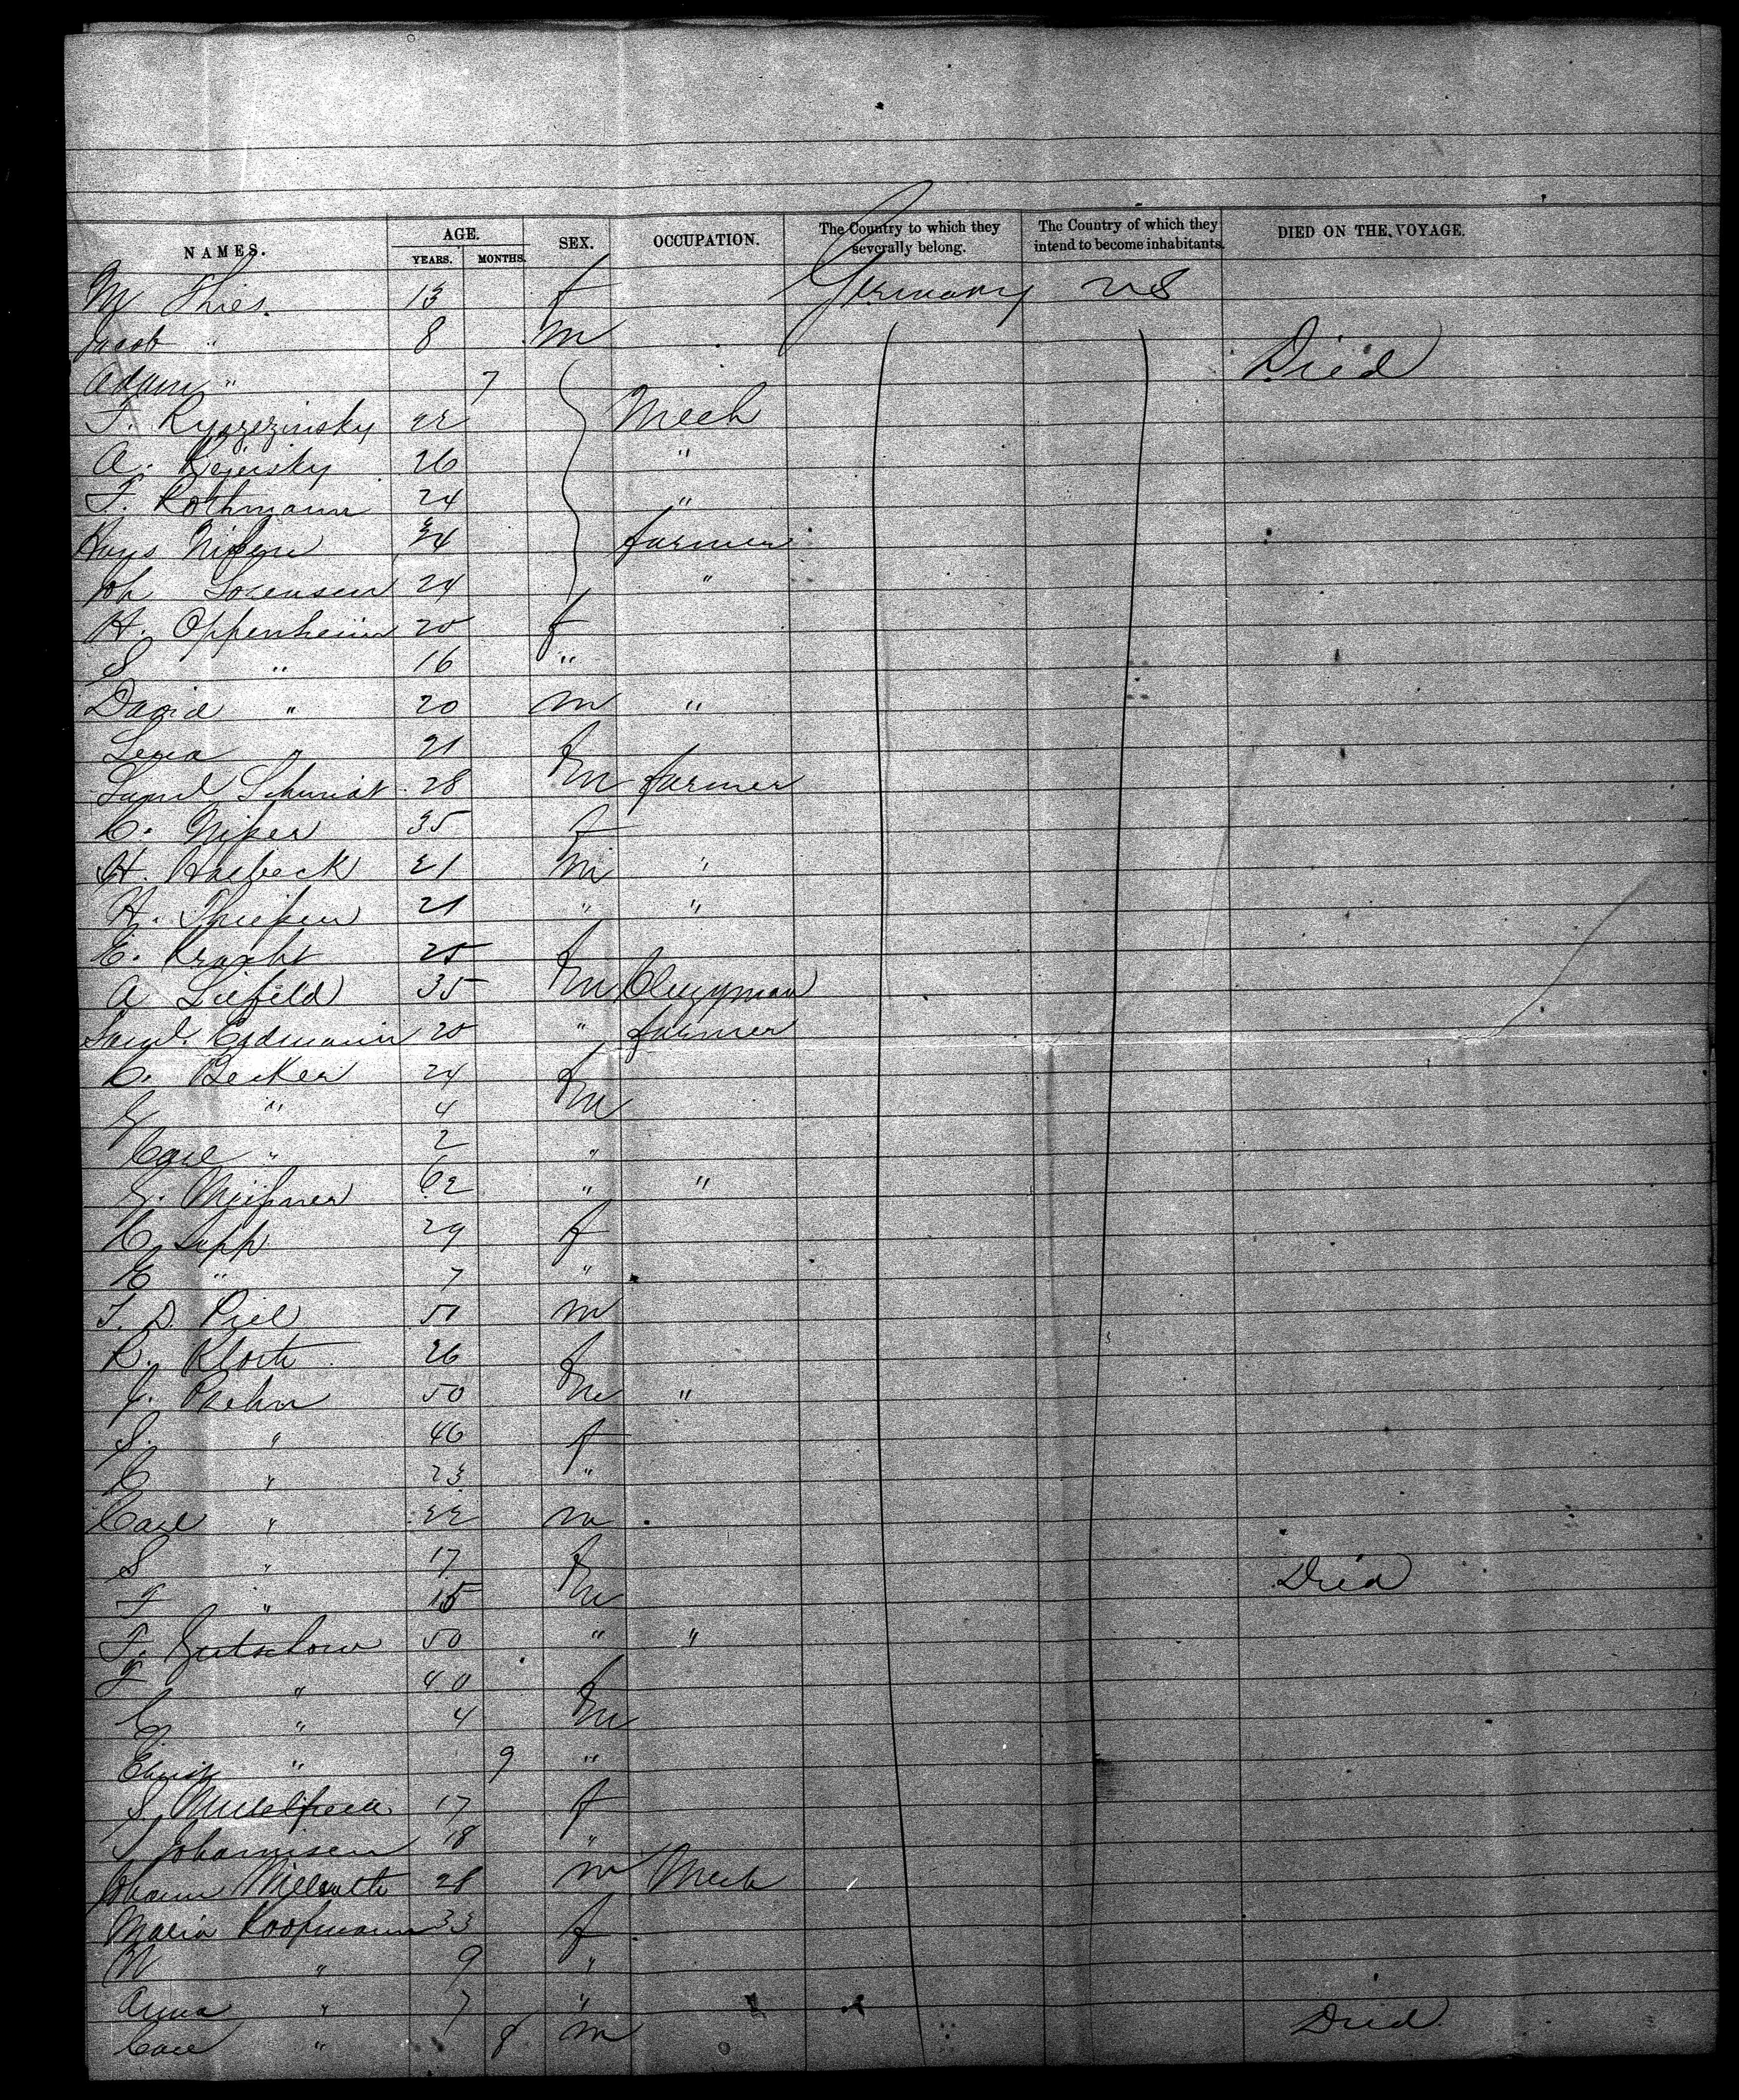 NAMES. AGE. YEARS. MONTHS. SEX. OCCUPATION. The Country to which they severally belong. The Country of which they intend to become inhabitants. DIED ON THE VOYAGE.
M Thies. 13 f Germany US
Jacob " 8 m
Adam " 7 Died
F. 22 Mech
A. 26 "
F. Rothmann 24 "
Hans 34 farmer
Joh Sorensen 24 "
H. Oppenheim 20 f
S " 16 "
David " 20 m "
Lena " 21 f
Saml Schmidt 28 m farmer
C. 35 f
H. Hasbeck 21 m "
H. 21 " "
E. Kracht 25 f
A Liefeld 35 m Clergyman
Saml. Erdmann 20 " farmer
C. Becker 24 f
G " 4 m
Carl " 2 "
G. Meißner 62 " "
C. Lipp 29 f
E " 7 "
F. D. Piel 51 m
R. Kloth 26 f
J. Prehn 50 m "
S. " 46 f
C " 23 "
Carl " 22 m
S " 17 f Died
F " 15 m
F. Gutschow 50 " "
F " 40 f
C " 4 m
Christ " 9 "
S. 17 f
Johannsen 18 "
Johann 28 m Mech
Maria Koopmann 33 f
W " 9 "
Anna " 7 "
Carl " m Died